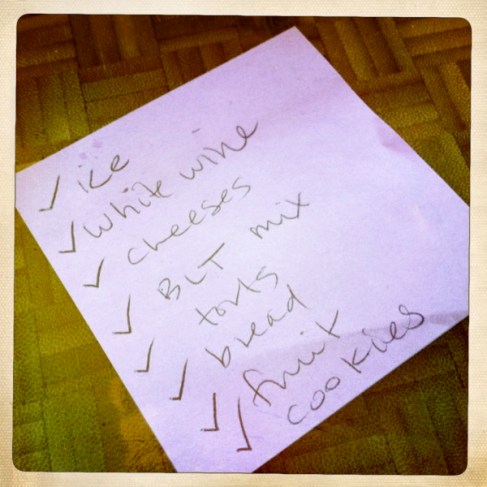 ✓ ice
✓ white wine
✓ cheeses
✓ BLT mix
✓ torts
✓ bread
✓ fruit
✓ cookies